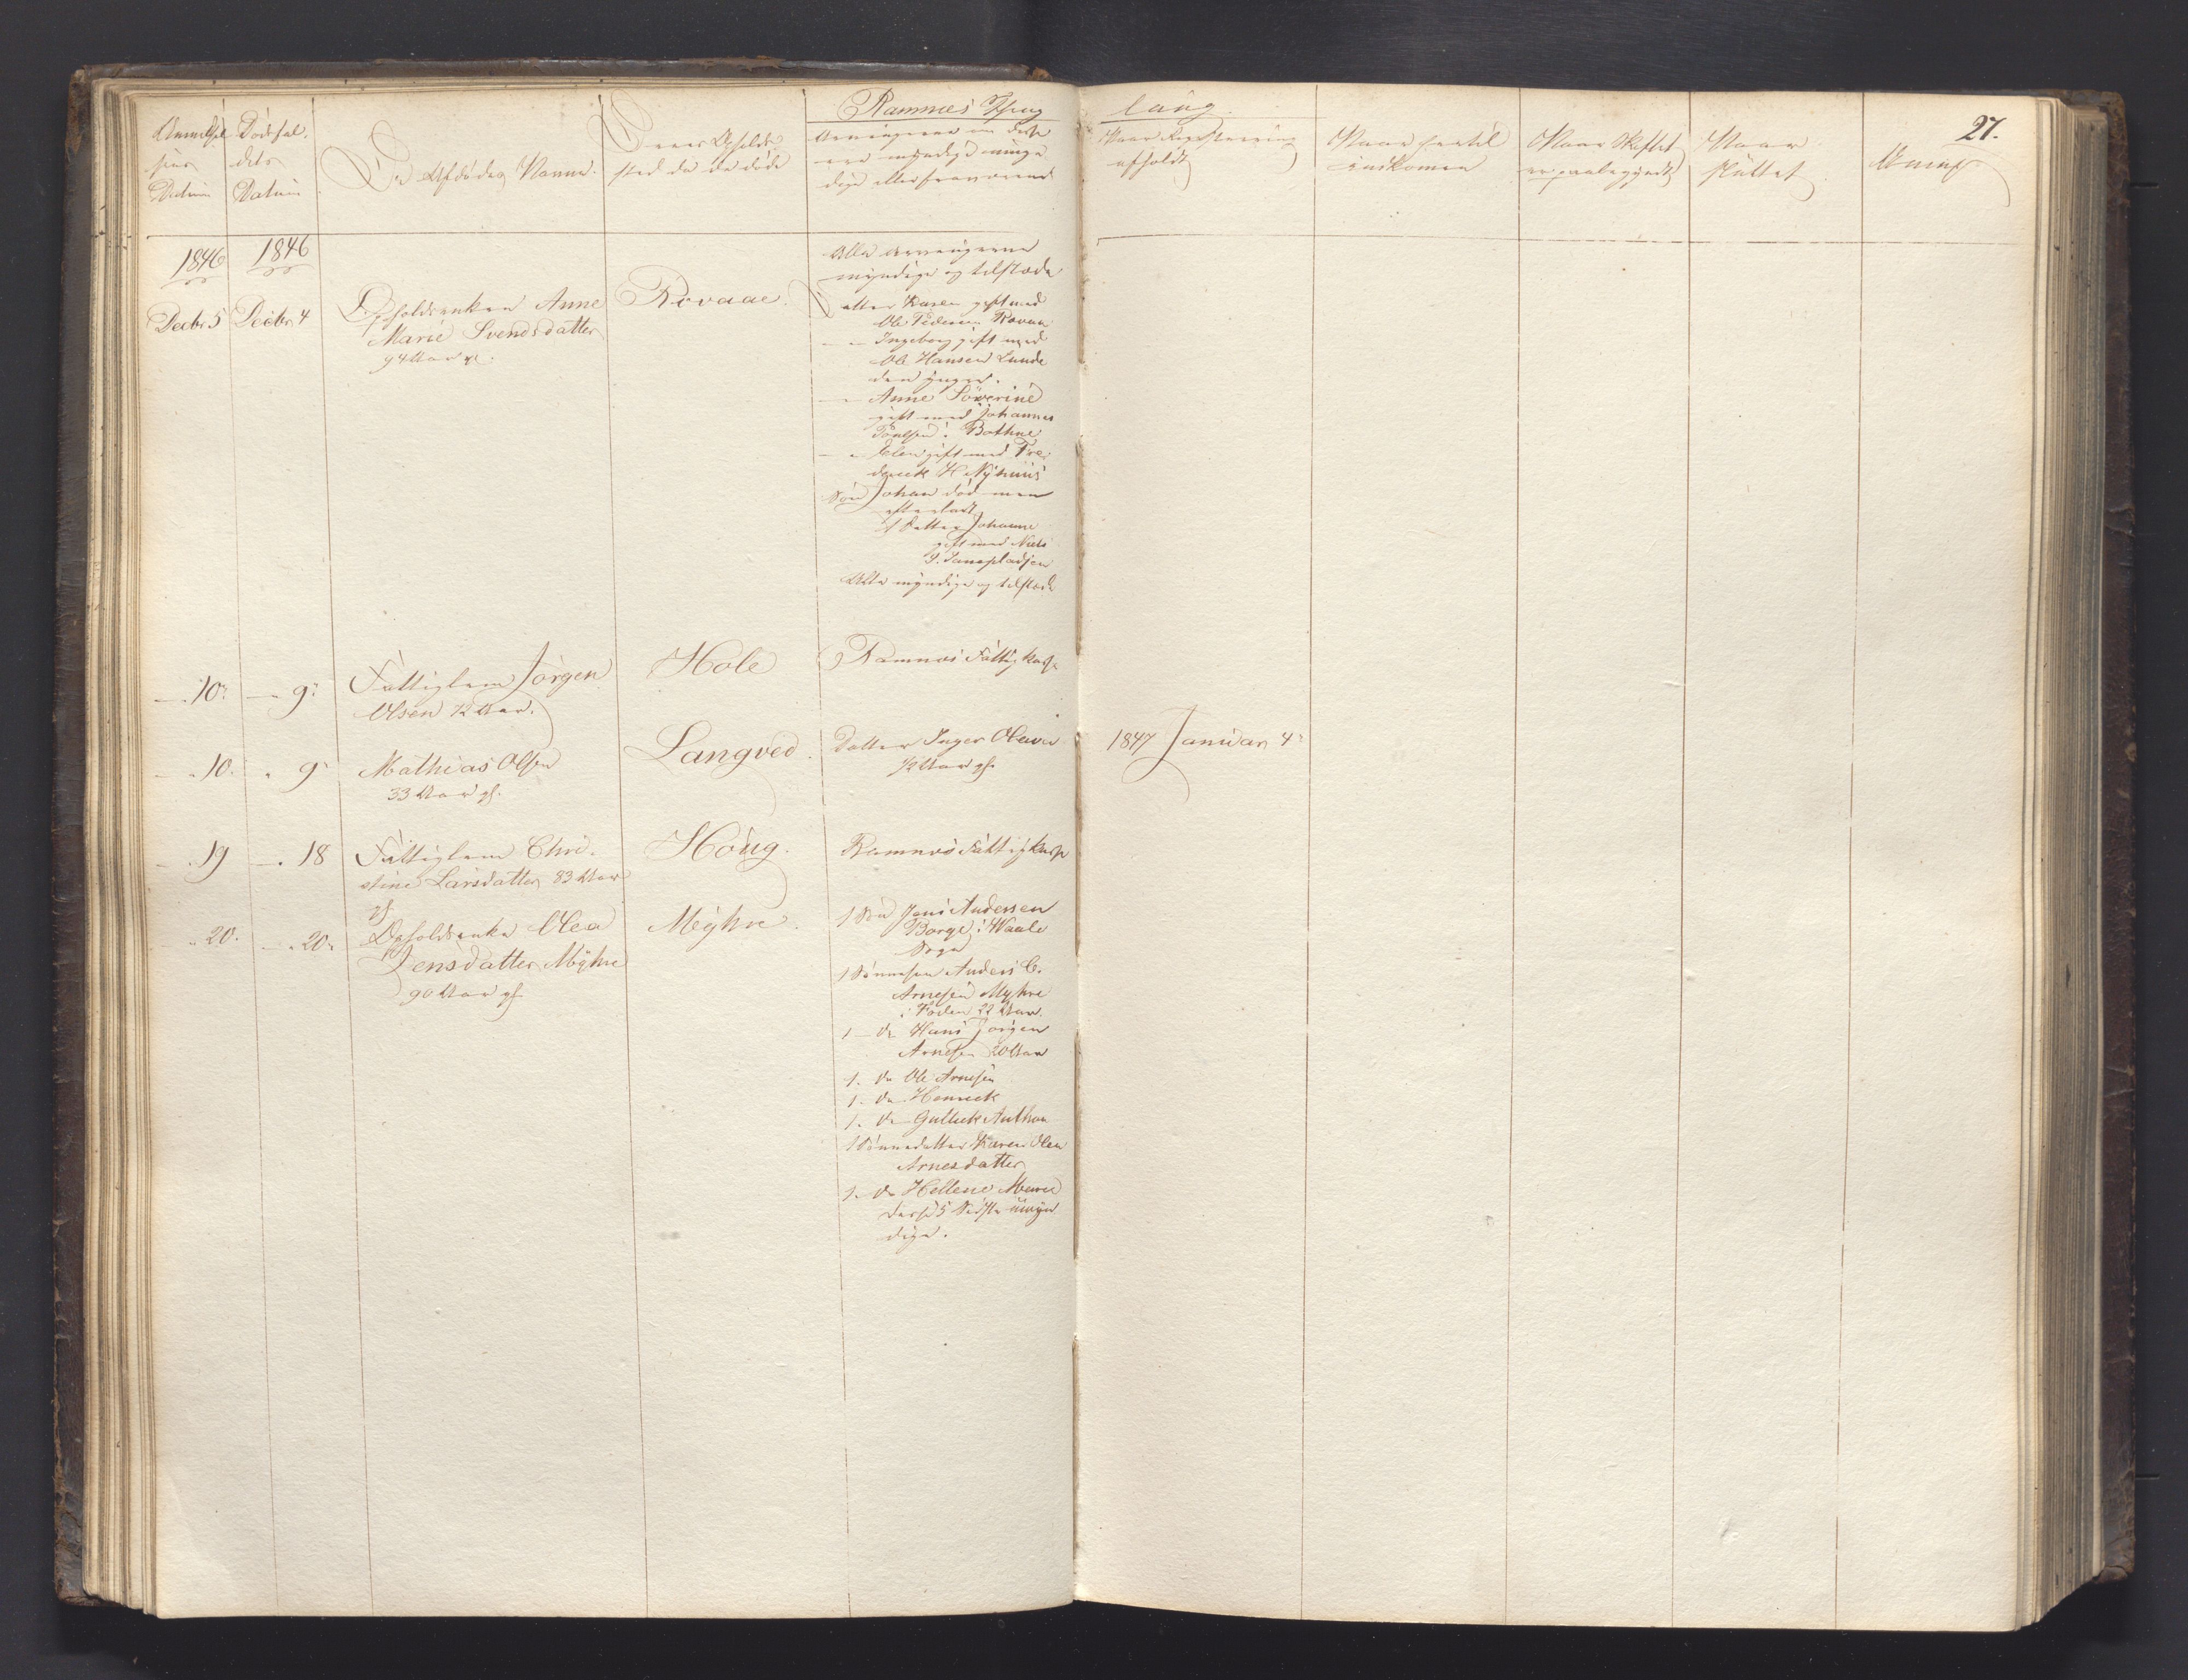 Ramnes Thing
laug.
27.
Anmeldel
sens
Datum
Dødsfal.
dets
Datum
De Afdødes Navne.
Deres Opholds
sted da de døde
Arvingerne om disse
ere myndige umyn
dige eller fraværende
Naar Registrering
afholdt
Naar hertil
indkomen
Naar Skiftet
er paabegyndt
Naar
sluttet
Anmf
1846
1846
Decbr 5
Decbr 4
Opholdsenken Anne
Marie Svendsdatter
94 Aar gl.
Rovaae.
Alle Arvingerne
myndige og tilstæde
Datter Karen gift med
Ole Pedersen Rovaae
— Ingeborg gift med
Ole Hansen Lunde
den yngre.
— Anne Söverine
gift med Johannes
Poulsen i Bothne
— Elen gift med Fre
derick H Nyhuus
Søn Johan død men
efterladt
1 Datter Johanne
gift med Niels
J. Janspladsen
Alle myndige og tilstæde
—. 10.
—. 9.
Fattiglem Jørgen
Olsen 72 Aar.
Hole
Ramnes Fattigkasse
—. 10.
„ 9
Mathias Olsen
33 Aar gl.
Langved.
Datter Inger Olava
1/2 Aar gl.
1847 Januar 4
—. 19
—. 18
Fattiglem Chri-
stine Larsdatter 83 Aar
gl
Houg.
Ramnes Fattigkasse
„ 20.
—. 20.
Opholdsenke Olea
Jensdatter Myhre
90 Aar gl
Myhre.
1 Søn Jens Andersen
Borge i Waale
Sogn
1 Sønnesøn Anders C.
Arnesen Myhre
i Foden 22 Aar.
1 — Do Hans Jørgen
Arnesen 20 Aar
1. Do Ole Arnesen
1. Do Henrick
1. Do Gullick Anthon
1 Sønnedatter Karen Olea
Arnesdatter
1. Do Hellene Marie
disse 5 sidste umyn
dige.